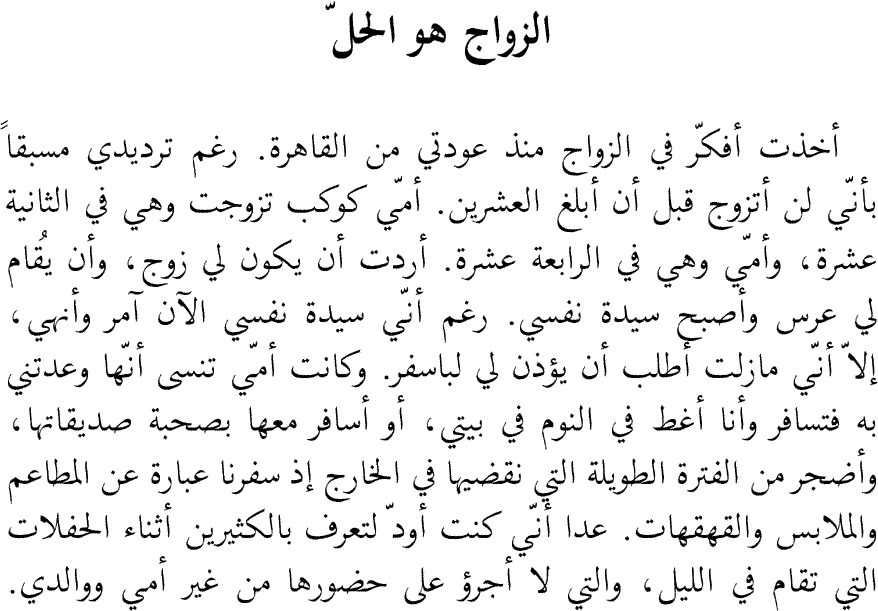 الزواج هو الحلّ
أخذت أفكّر في الزواج منذ عودتي من القاهرة. رغم ترديدي مسبقاً
بأنّي لن أتزوج قبل أن أبلغ العشرين. أمّي كوكب تزوجت وهي في الثانية
عشرة، وأمّي وهي في الرابعة عشرة. أردت أن يكون لي زوج، وأن يُقام
لي عرس وأصبح سيدة نفسي. رغم أنّي سيدة نفسي الآن آمر وأنهي،
إلاّ أنّي مازلت أطلب أن يؤذن لي لباسفر. وكانت أمّي تنسى أنّها وعدتني
به فتسافر وأنا أغط في النوم في بيتي، أو أسافر معها بصحبة صديقاتها،
وأضجر من الفترة الطويلة التي نقضيها في الخارج إذ سفرنا عبارة عن المطاعم
والملابس والقهقهات. عدا أنّي كنت أودّ لتعرف بالكثيرين أثناء الحفلات
التي تقام في الليل، والتي لا أجرؤ على حضورها من غير أمي ووالدي.